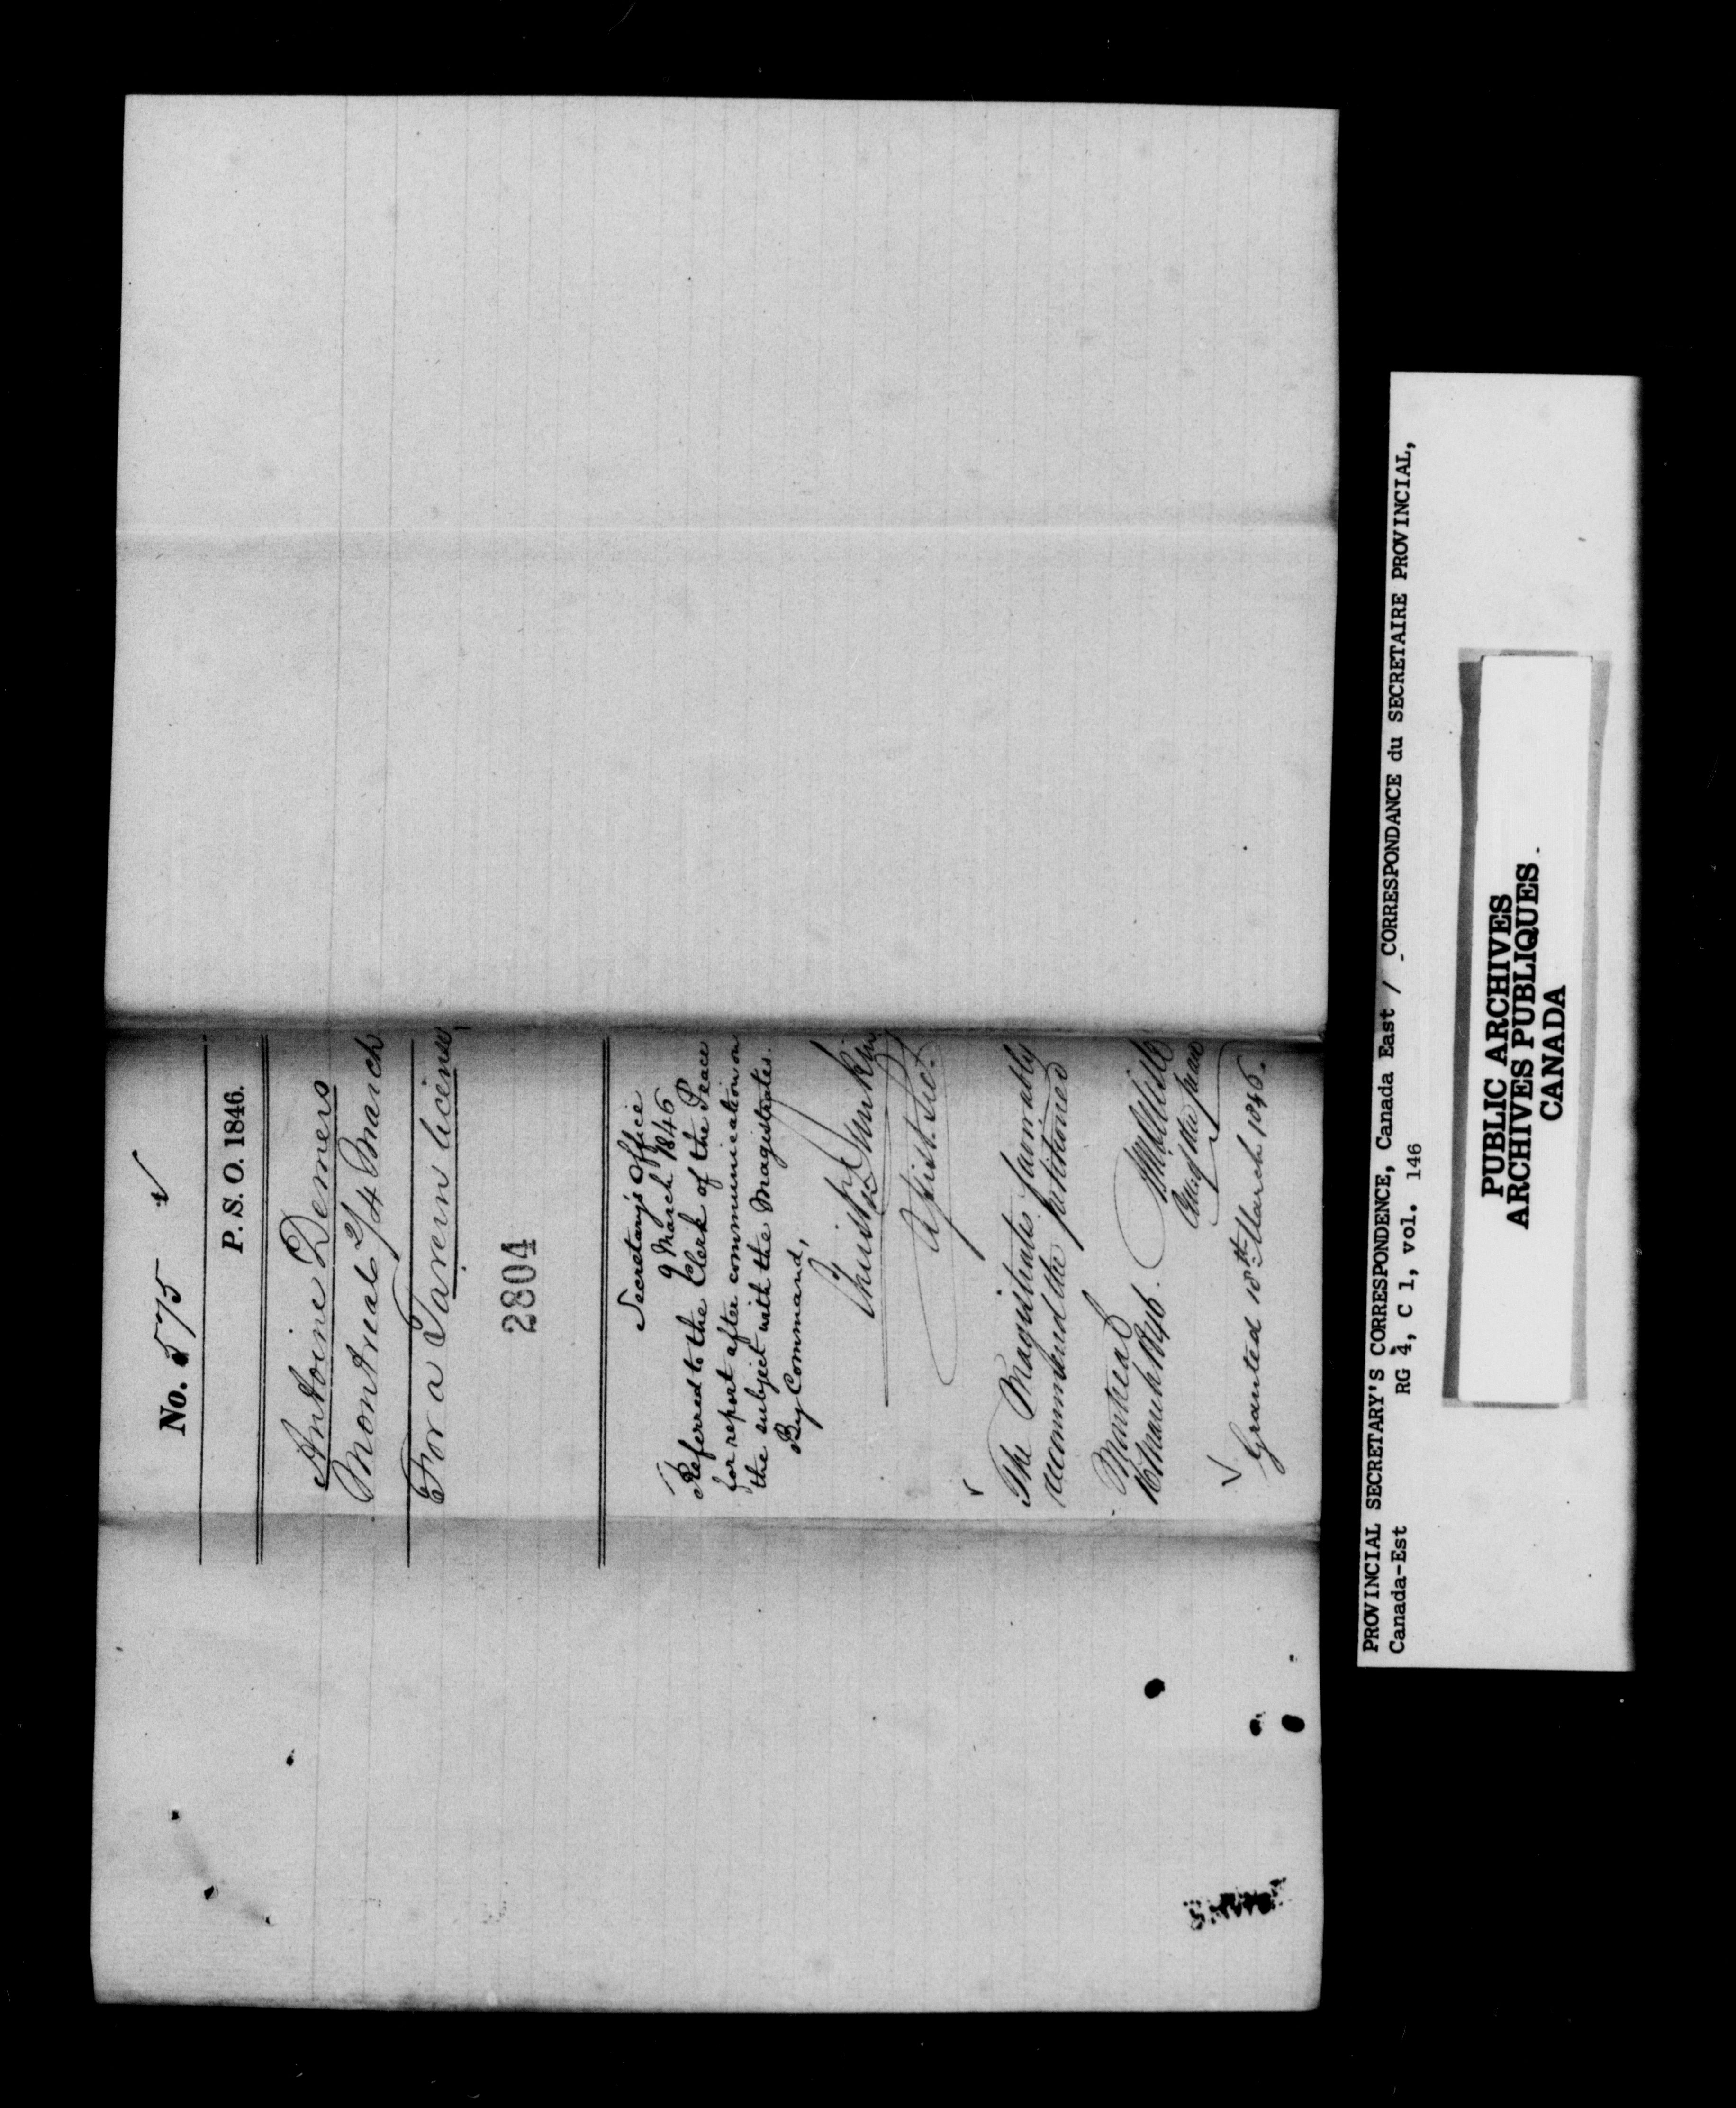 No. 575
P. S. O. 1846.
Antoine Demers
Montreal 2/4 March
For a Tavern licence
2804
Secretary's Office
9 March 1846
Referred to the Clerk of the Peace
for report after communication on
the subject with the Magistrates.
By Command,
Christ Dunkin
Assist. Sec.
The Magistrates favorably
recommend the petitioned
Montreal
March 1846.
Granted 18th March 1846.
PROVINCIAL SECRETARY'S CORRESPONDENCE, Canada East / CORRESPONDANCE du SECRETAIRE PROVINCIAL,
Canada-Est RG 4, C 1, vol. 146
PUBLIC ARCHIVES
ARCHIVES PUBLIQUES
CANADA